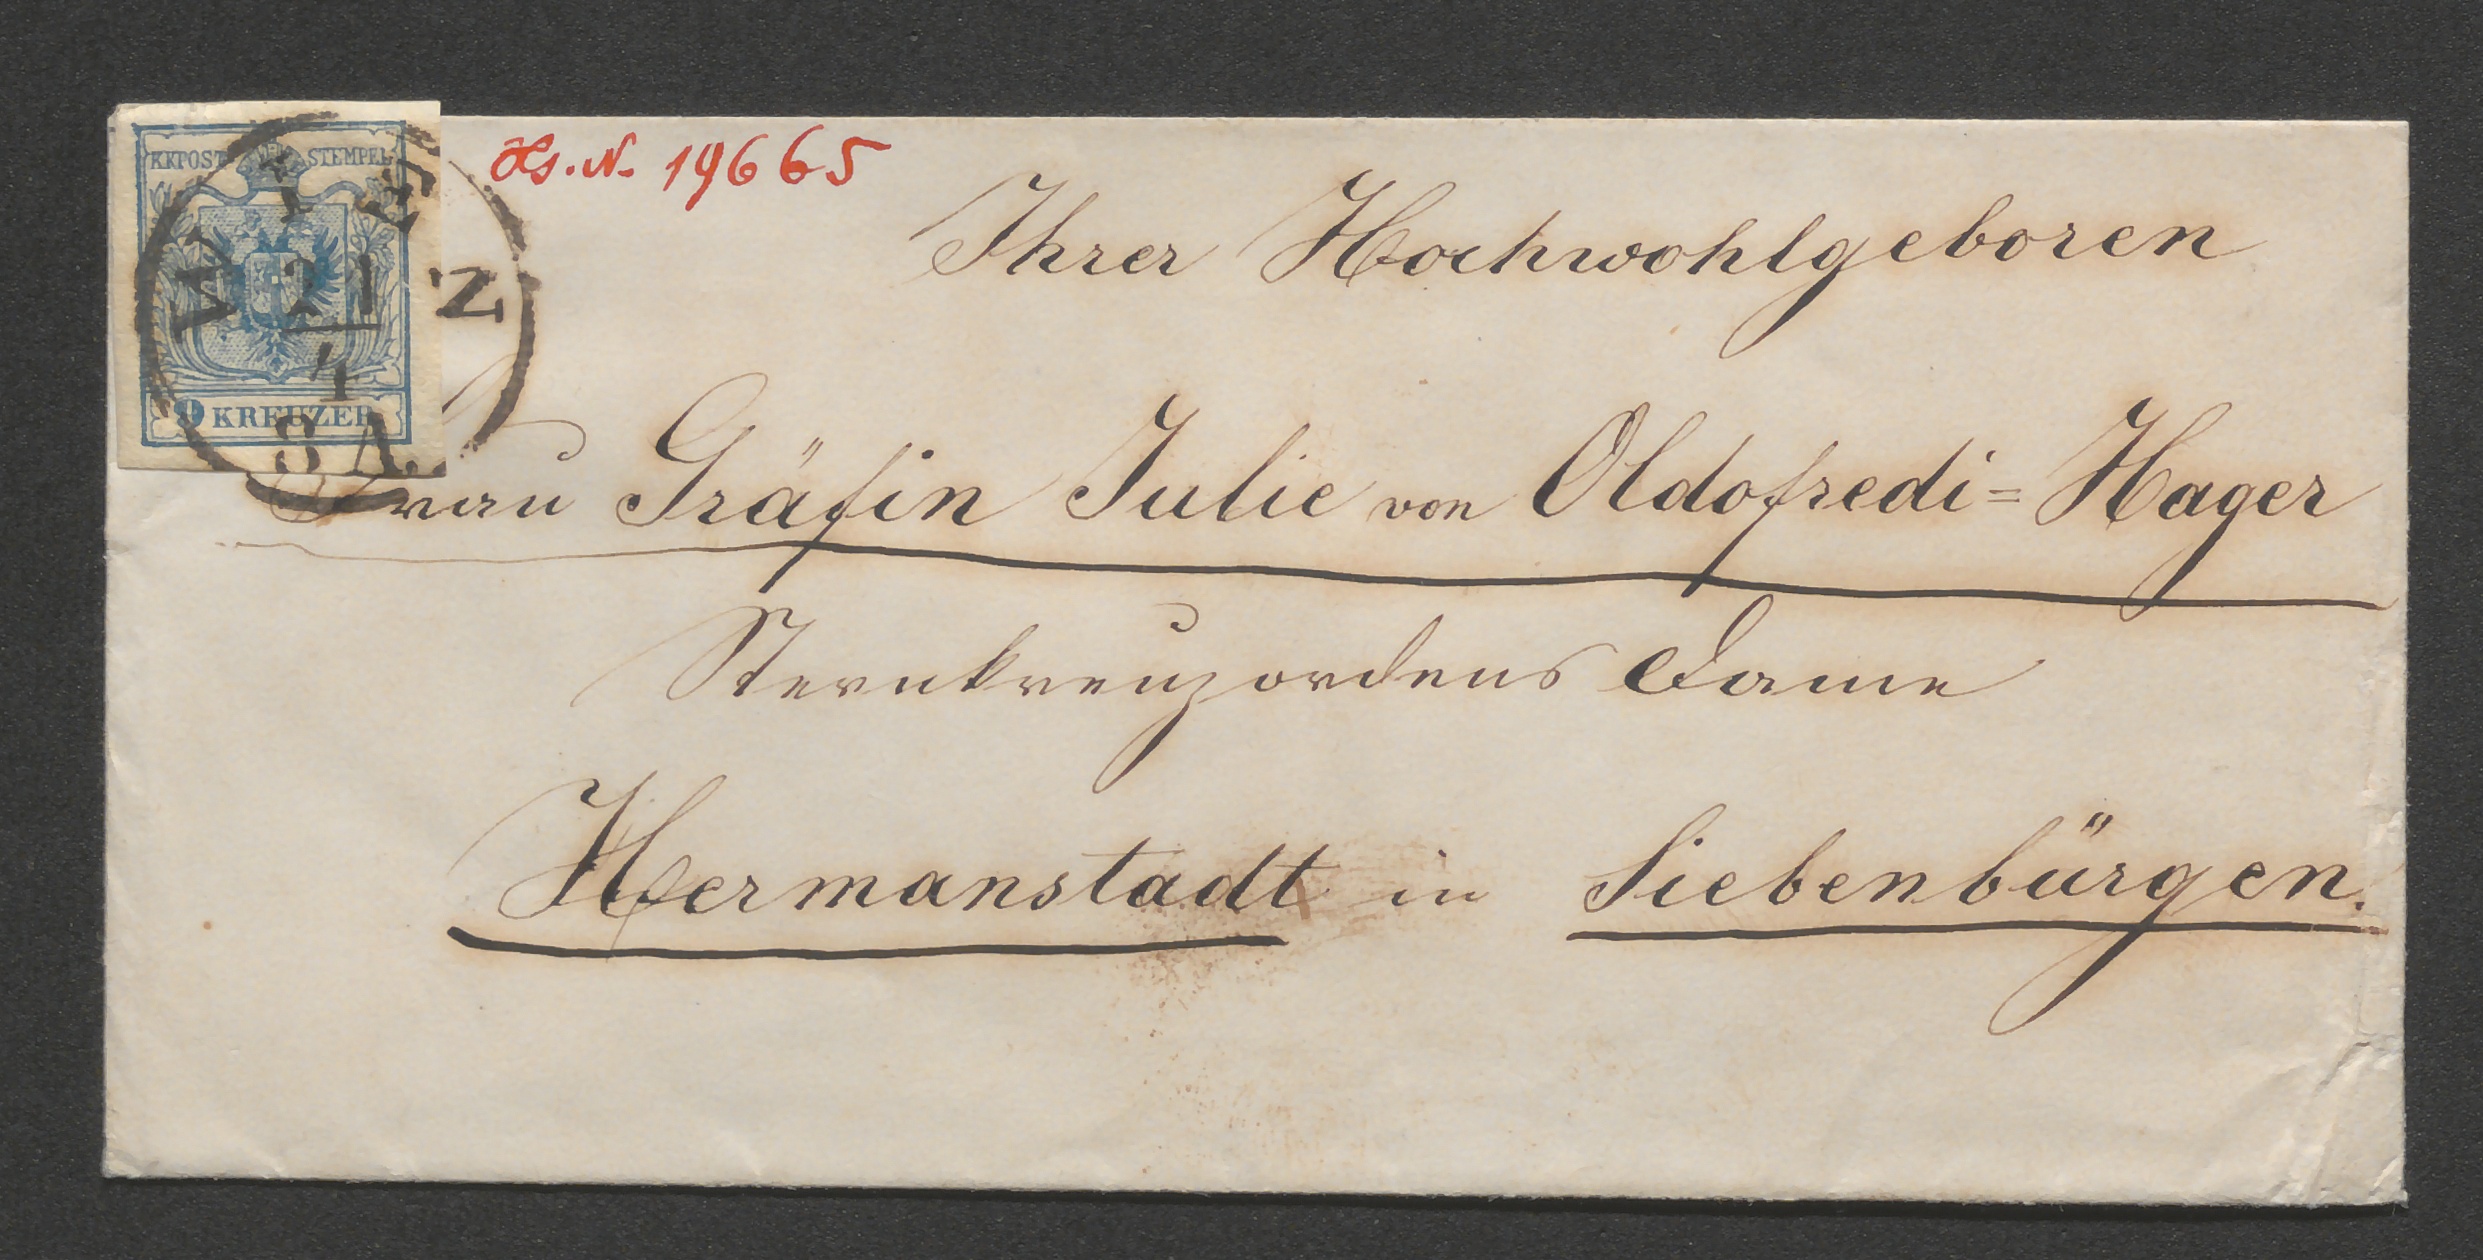 KKPOST STEMPEL
9 KREUZER
WIEN
21
4
8 A.
Hs. N. 19665
Ihrer Hochwohlgeboren
Frau Gräfin Julie von Oldofredi=Hager
Sternkreuzordens Dame
Hermanstadt in Siebenbürgen.